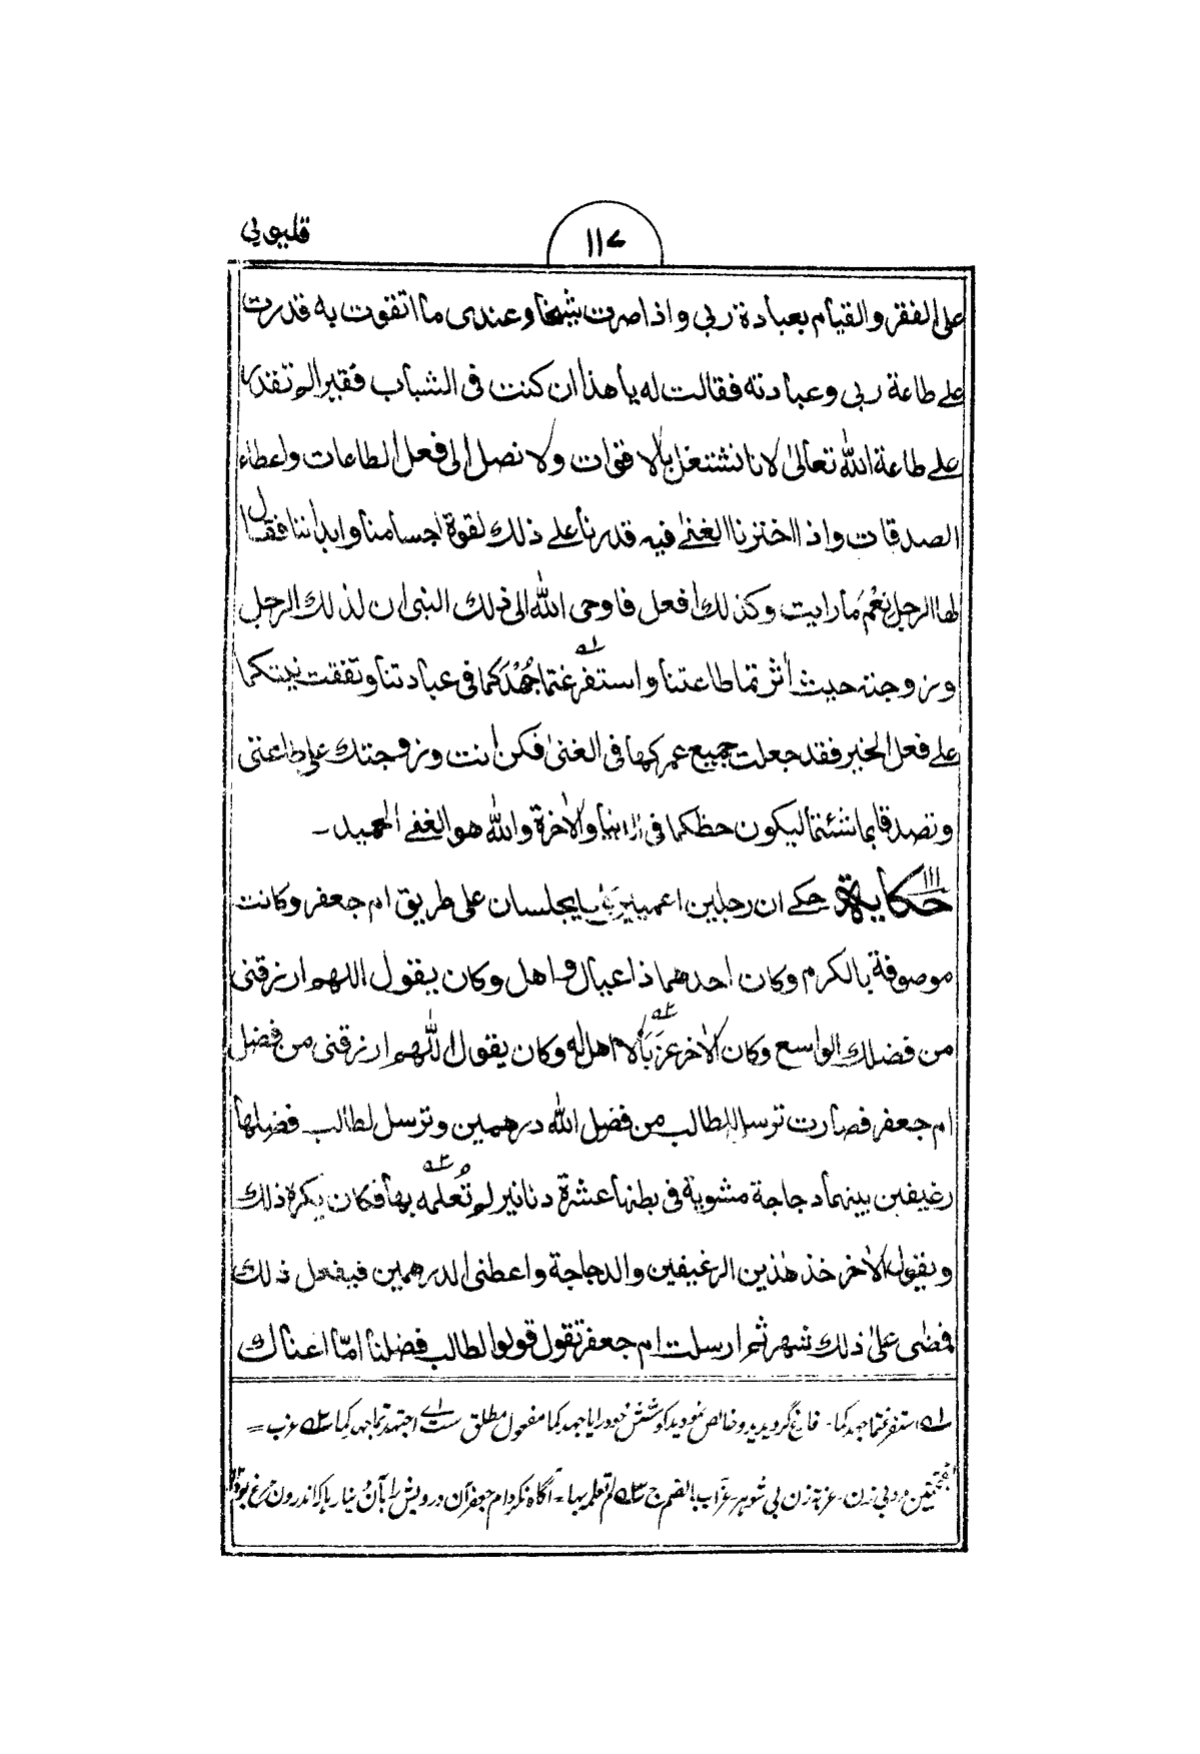 قليوبي
١١٧
على الفقر والقيام بعبادة ربي واذا صرت شيخا وعندى ما اتقوت به قدرت
على طاعة ربي وعبادته فقالت له يا هذا ان كنت فى الشباب فقيرا لم تقدر
على طاعة الله تعالىٰ لانا نشتغل بالاقوات ولا نصل الى فعل الطاعات واعطاء
الصدقات واذا اخترنا الغنىٰ فيه قدرنا على ذلك لقوة اجسامنا وابداننا فقال
لها الرجل نِعْمَ ما رايت وكذلك افعل فاوحى الله الى ذلك النبى ان لذلك الرجل
وزوجته حيث أثرتما طاعتنا واستفرغتما جُهْدَكما فى عبادتنا وتفقت نيتكما
على فعل الخير فقد جعلت جميع عمركما فى الغنىٰ فكن انت وزوجتك على طاعتى
وتصدقا بما شئتما ليكون حظكما فى الدنيا والاٰخرة والله هو الغفى الحميد ـ
حكاية ١١١ حكى ان رجلين اعميين كانا يجلسان على طريق ام جعفر وكانت
موصوفة بالكرم وكان احدهما ذا عيال واهل وكان يقول اللهم ارزقنى
من فضلك الواسع وكان الاٰخر عَزَبًا لا اهل له وكان يقول اللّٰهم ارزقنى من فضل
ام جعفر فصارت ترسل لطالب من فضل الله درهمين وترسل لطالب فضلها
رغيفين بينهما دجاجة مشوية فى بطنها عشرة دنانير لم تُعلمه بها فكان يكره ذلك
ويقول للاٰخر خذ هٰذين الرغيفين والدجاجة واعطنى الدرهمين فيفعل ذلك
فمضى علىٰ ذلك شهر ثم ارسلت ام جعفر تقول قولوا لطالب فضلنا امّا اغناك
له استفرغتما جهدكما۔ فارغ گرويديد وخالص نموديد كوشش خود را يا جهدكما مفعول مطلق ست اے اجتهدتما جهدكما ٢ه عزب =
بفتحتين مرد بي زن۔ عزبة زن بي شوہر۔ عزّاب بالضم ج ٣ه لم تعلمه بها۔ آگاه نكرد ام جعفر آن درويش را بآن دينارہا كہ اندرون مرغ بود